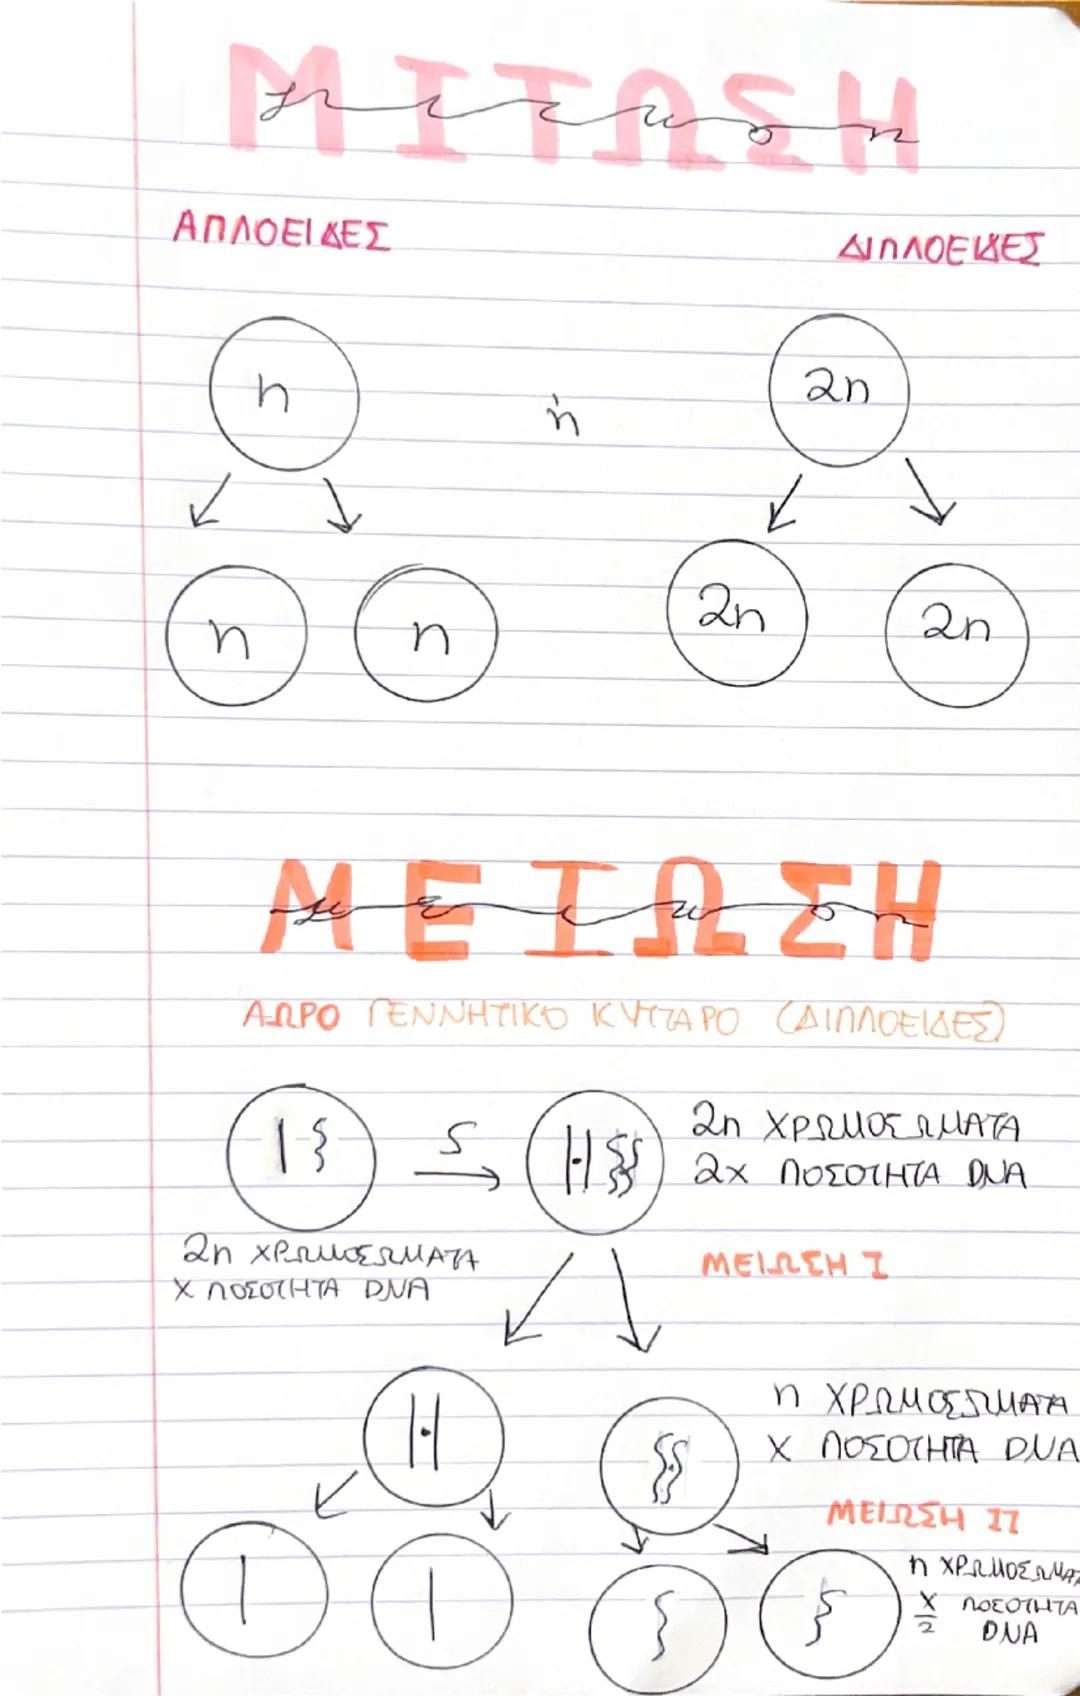 ΜΙΤΩΣΗ
μιτωση
ΑΠΛΟΕΙΔΕΣ ΔΙΠΛΟΕΙΔΕΣ
n ή 2n
n n 2n 2n
ΜΕΙΩΣΗ
μειωση
ΑΩΡΟ ΓΕΝΝΗΤΙΚΟ ΚΥΤΤΑΡΟ (ΔΙΠΛΟΕΙΔΕΣ)
S
2n ΧΡΩΜΟΣΩΜΑΤΑ
2x ΠΟΣΟΤΗΤΑ DNA
2n ΧΡΩΜΟΣΩΜΑΤΑ
x ΠΟΣΟΤΗΤΑ DNA
ΜΕΙΩΣΗ I
n ΧΡΩΜΟΣΩΜΑΤΑ
x ΠΟΣΟΤΗΤΑ DNA
ΜΕΙΩΣΗ II
n ΧΡΩΜΟΣΩΜΑΤ
x/2 ΠΟΣΟΤΗΤΑ
DNA